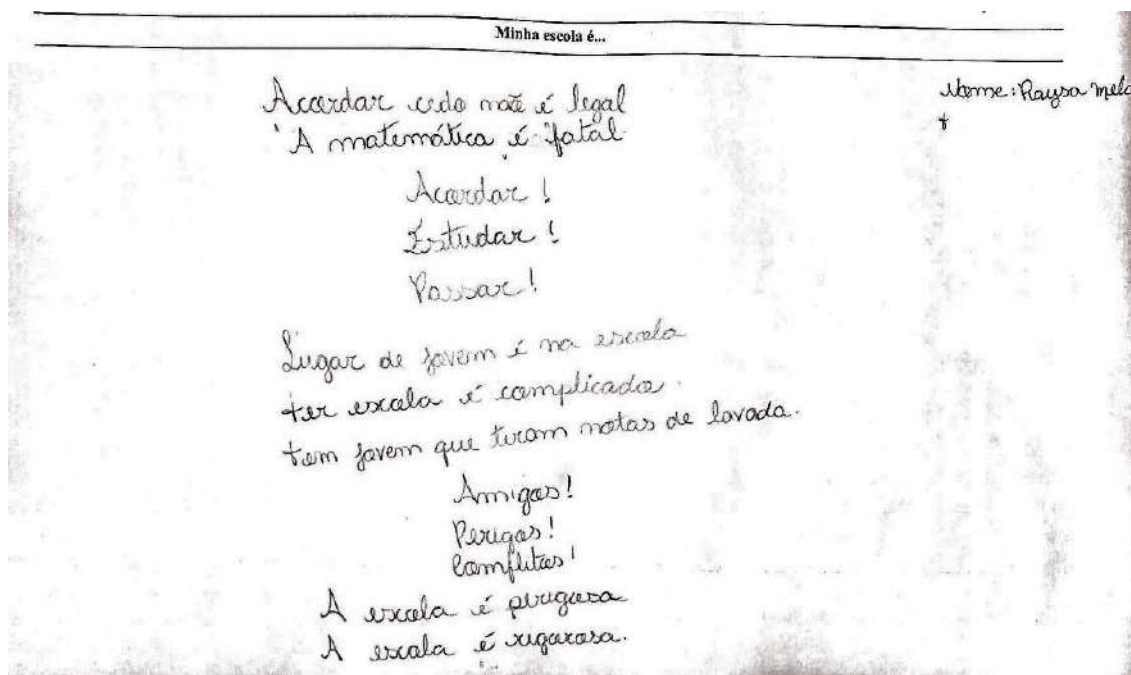 Minha escola é...
Nome: Raysa Melo
Acordar cedo não é legal
A matemática é fatal.
Acordar!
Estudar!
Passar!
Lugar de jovem é na escola
ter escola é complicado.
tem jovem que tiram notas de lavada.
Amigos!
Perigos!
Conflitos!
A escola é perigosa
A escola é rigorosa.